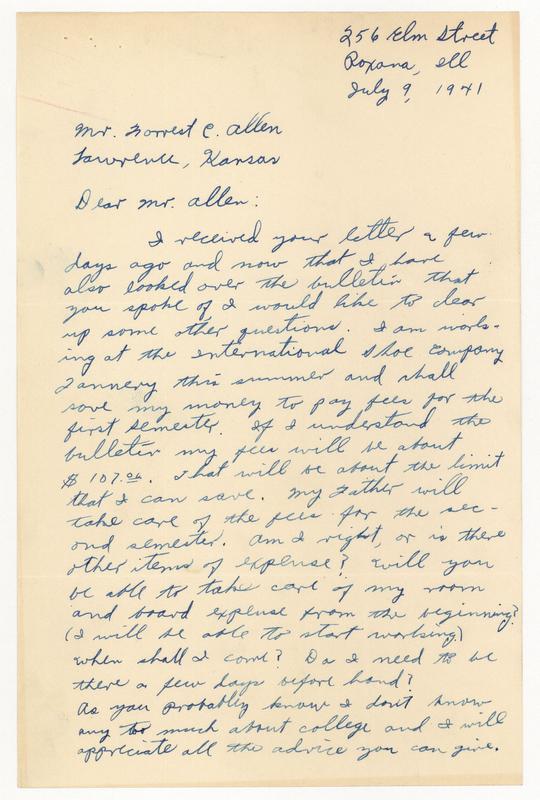 256 Elm Street
Roxana, Ill
July 9, 1941
Mr. Forrest C. Allen
Lawrence, Kansas
Dear Mr. Allen:
I received your letter a few
days ago and now that I have
also looked over the bulletin that
you spoke of I would like to clear
up some other questions. I am work-
ing at the International Shoe Company
Tannery this summer and shall
save my money to pay fees for the
first semester. If I understand the
bulletin my fees will be about
$107.00. That will be about the limit
that I can save. My Father will
take care of the fees for the sec-
ond semester. Am I right, or is there
other items of expense? Will you
be able to take care of my room
and board expense from the beginning?
(I will be able to start working)
When shall I come? Do I need to be
there a few days before hand?
As you probably know I don't know
any too much about college and I will
appreciate all the advice you can give.